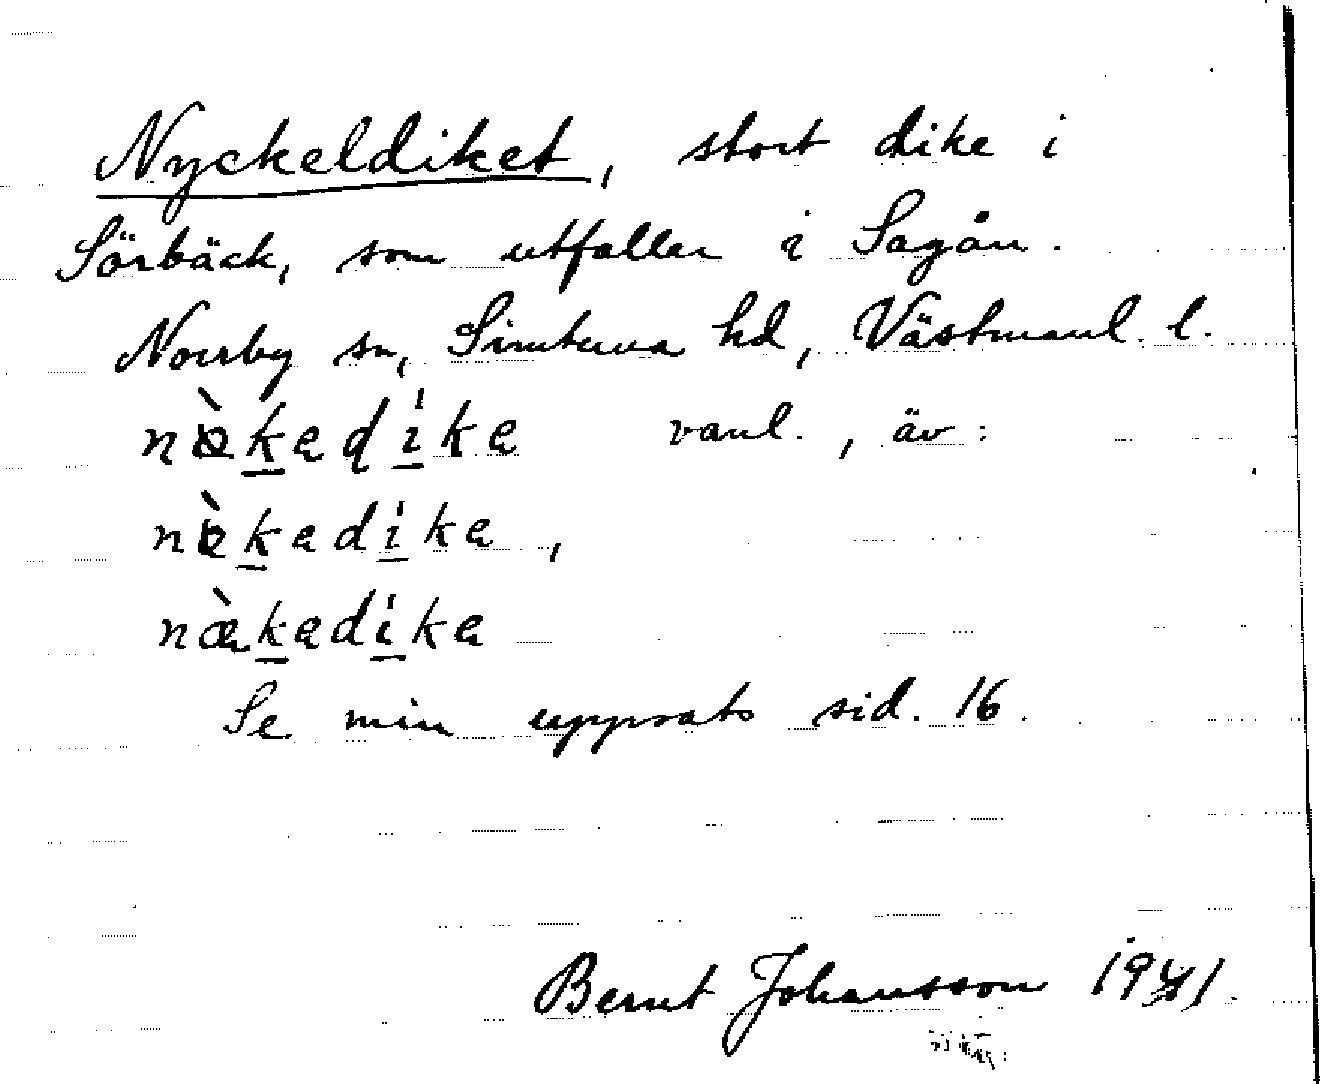 Nyckeldiket, stort dike i
Sörbäck, som utfaller i Sagån.
Norrby sn, Simtuna hd, Västmanl. l.
vanl., äv:
Se min uppsats sid. 16.
Bernt Johansson 1941.